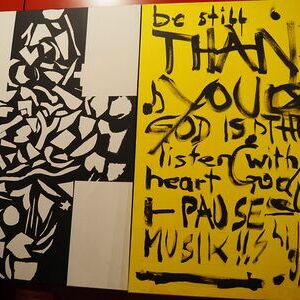 be still
THAN
YOU
GOD IS
listen with
heart God
PAUSE
MUSIK !!